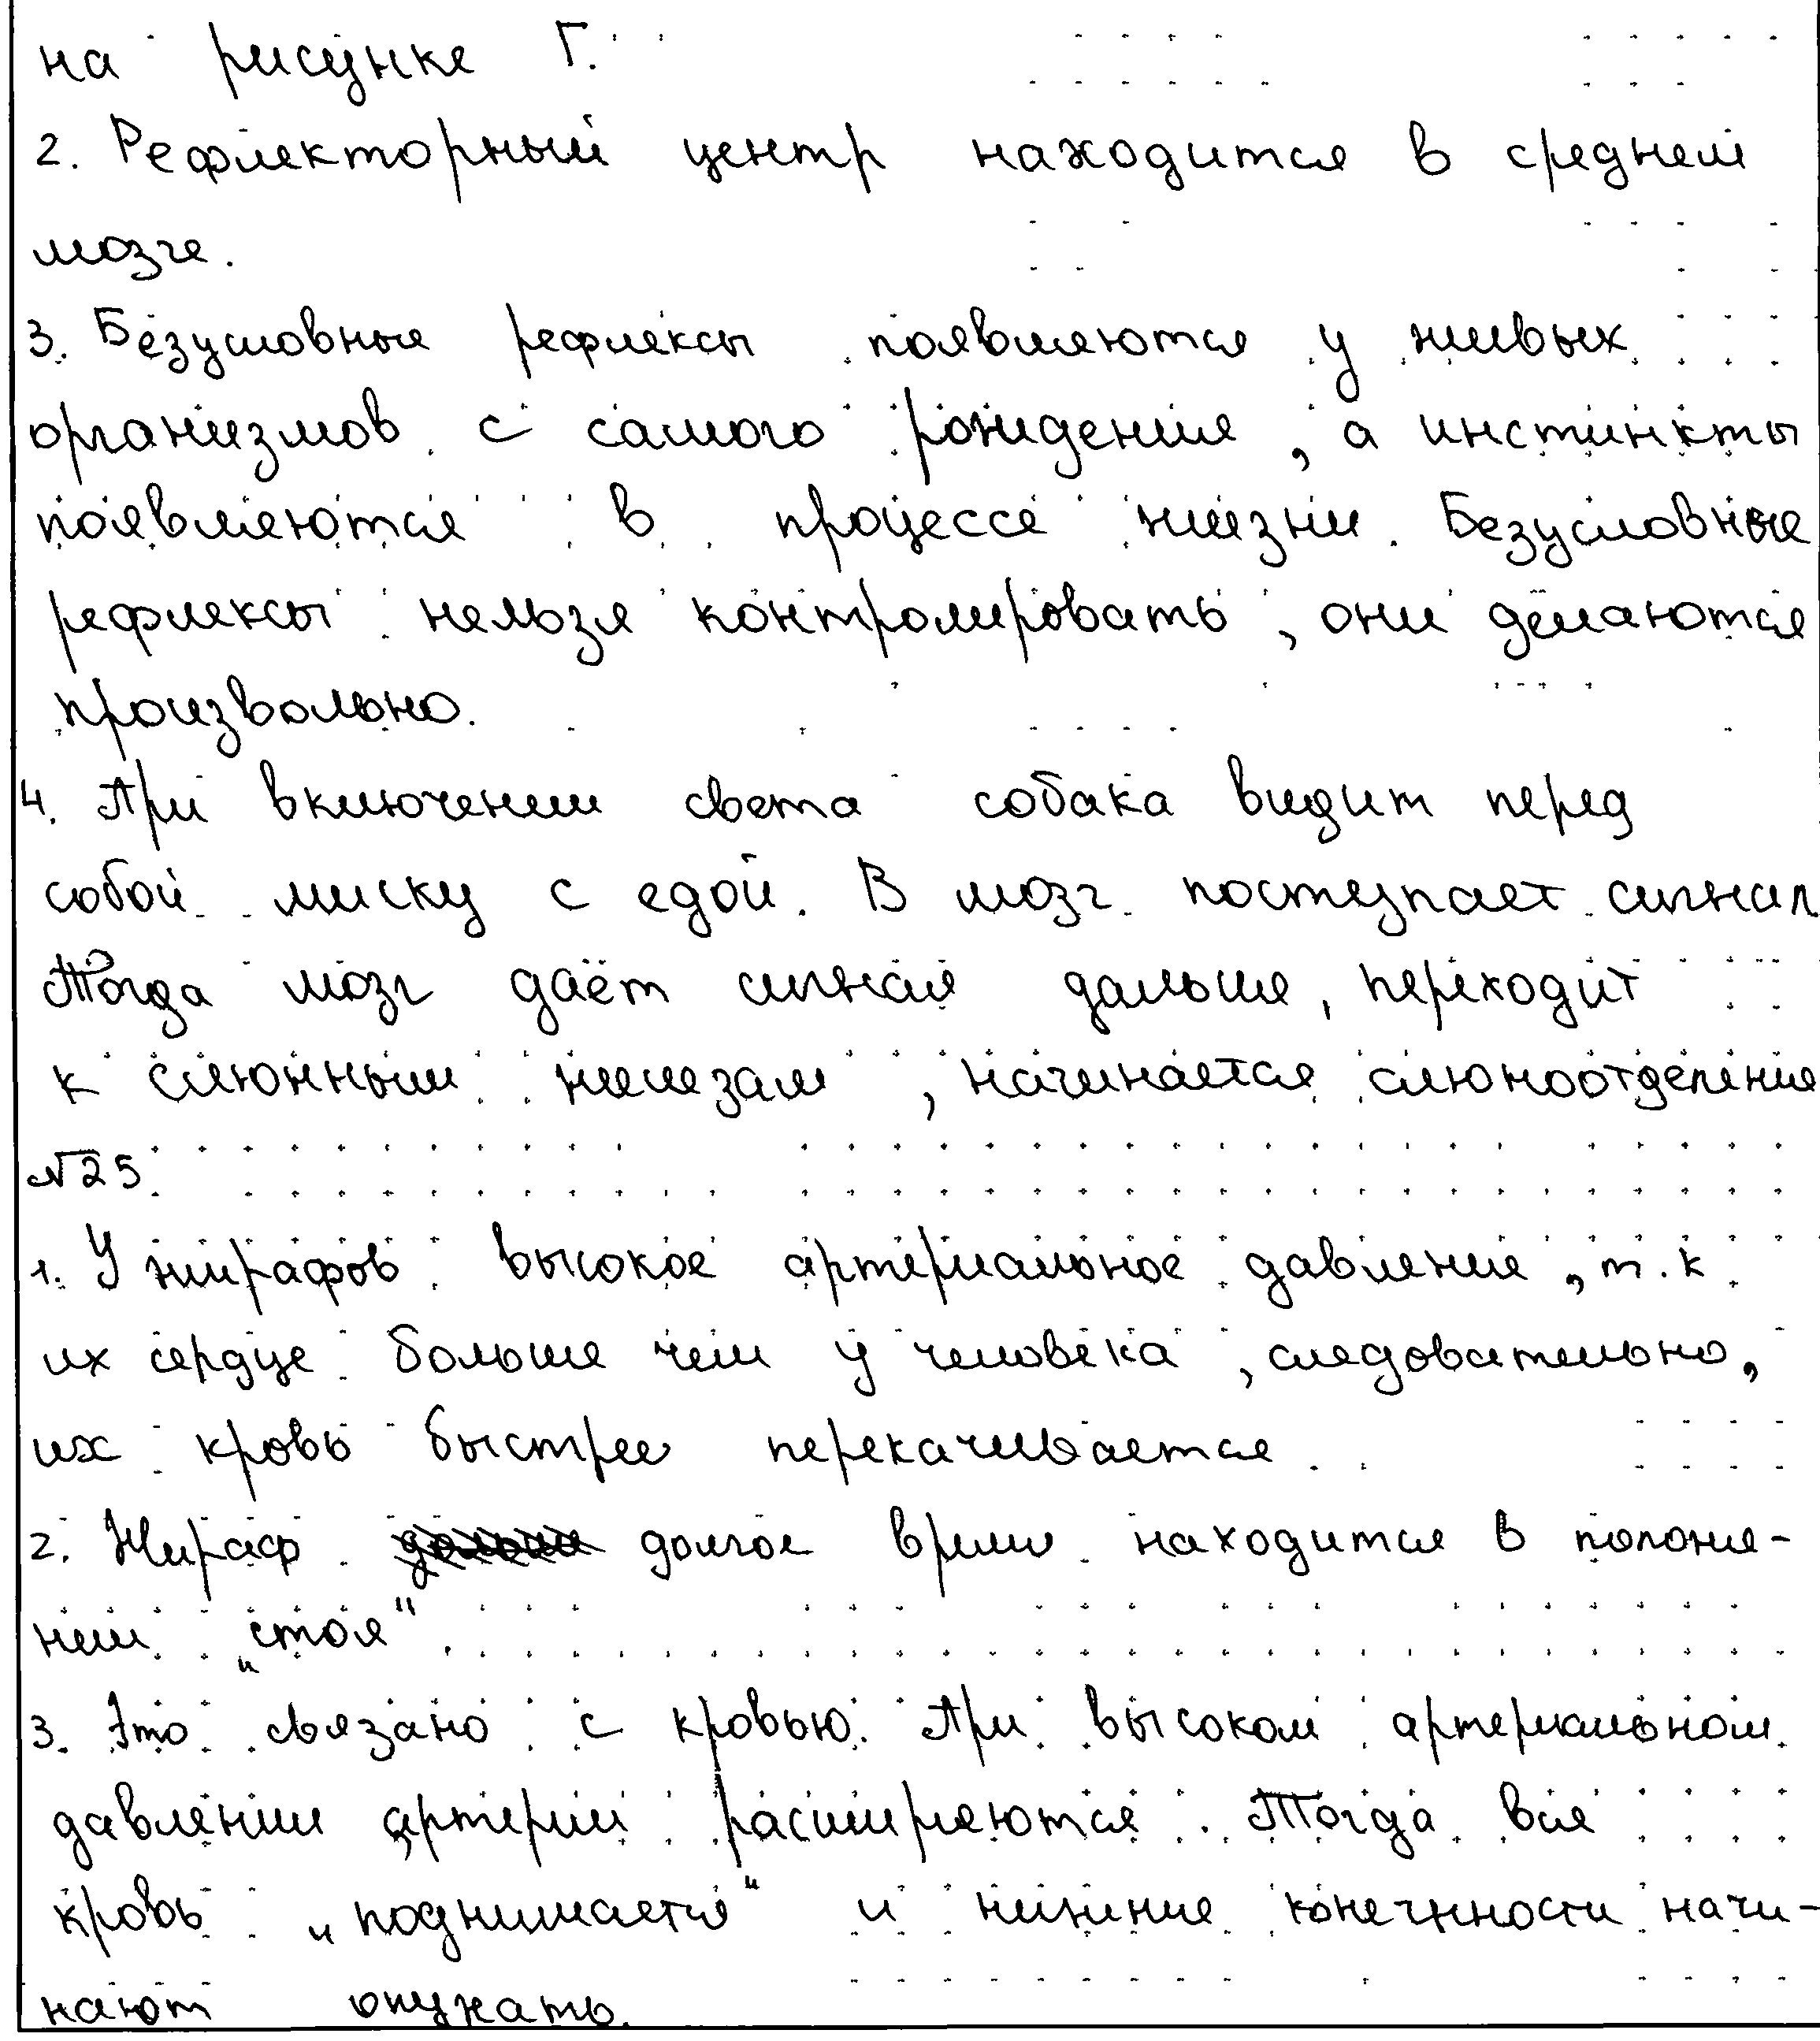 на рисунке Г.
2. Рефлекторный центр находится в среднем
мозге.
3. Безусловные рефлексы появляются у живых
организмов с самого рождения, а инстинкты
появляются в процессе жизни. Безусловные
рефлексы нельзя контролировать, они делаются
произвольно.
4. При включении света собака видит перед
собой миску с едой. В мозг поступает сигнал
Тогда мозг даёт сигнал дальше, переходит
к слюнным железам, начинается слюноотделение
№25.
1. У жирафов высокое артериальное давление, т.к
их сердце больше чем у человека, следовательно,
их кровь быстрее перекачивается.
2. Жираф долгое время находится в положе-
нии „стоя".
3. Это связано с кровью. При высоком артериальном
давлении артерии расширяются. Тогда вся
кровь „поднимается" и нижние конечности начи-
нают опухать.